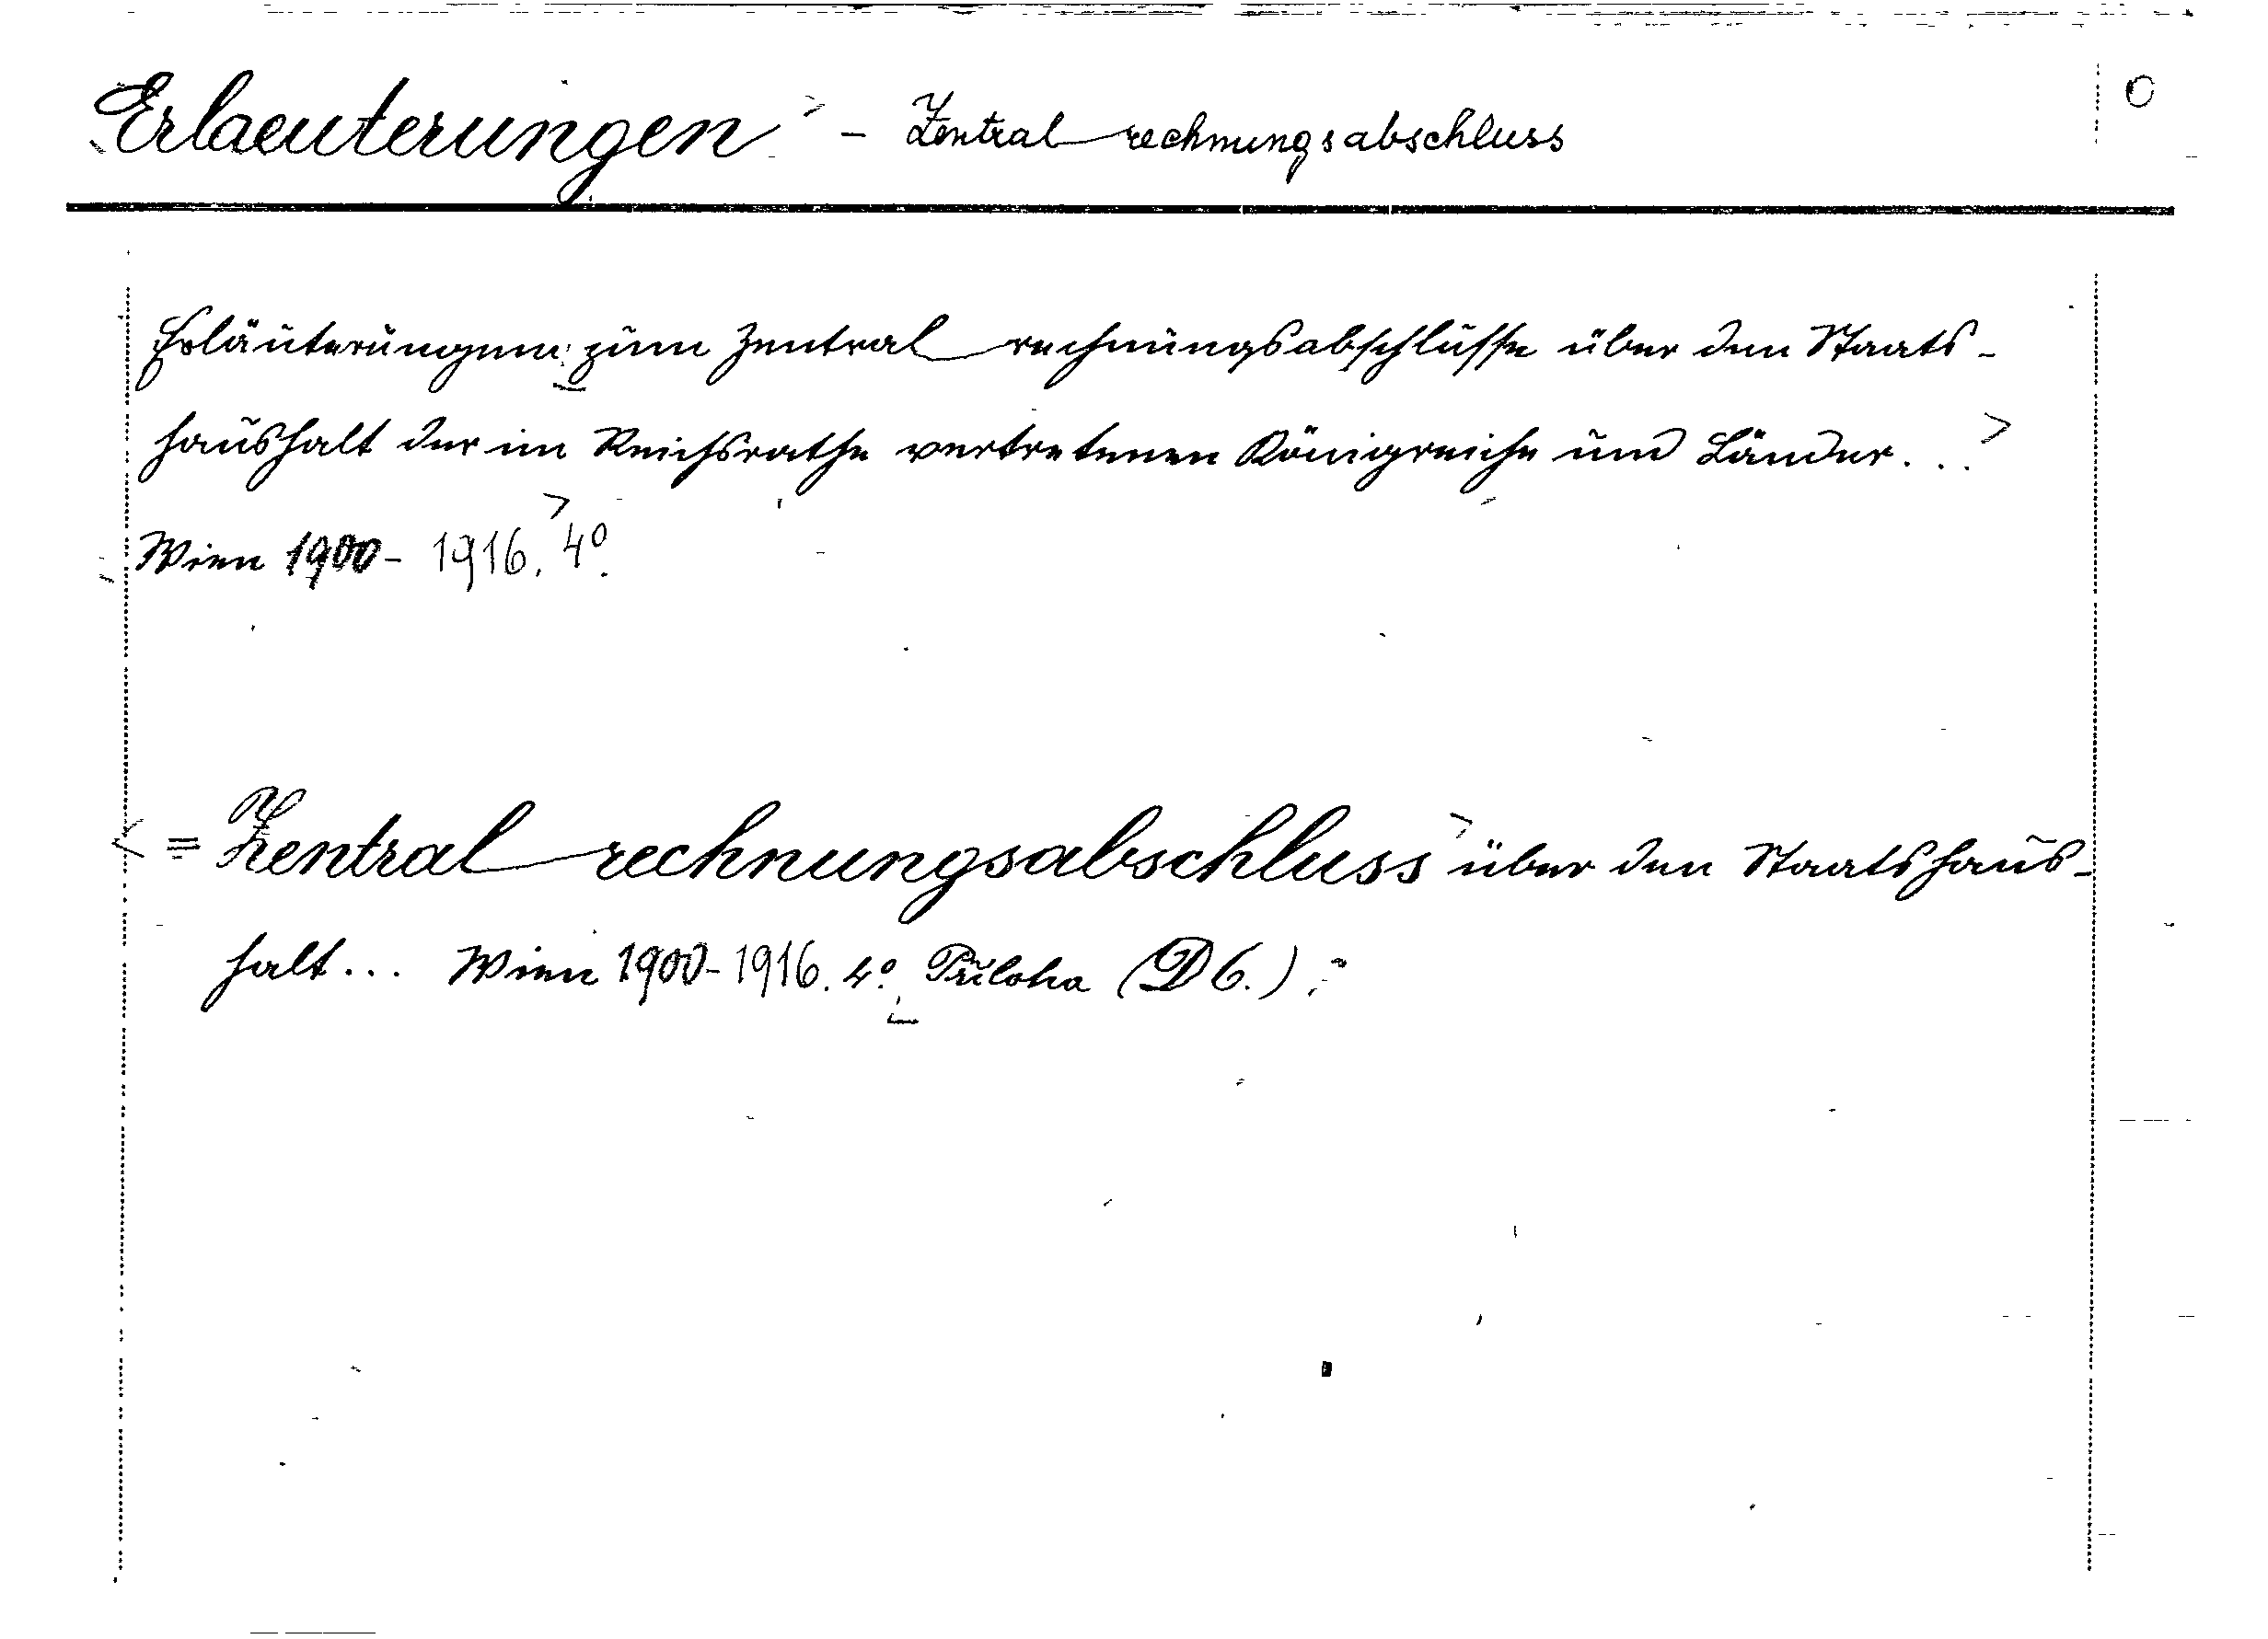 Erlaeuterungen - Zentralrechnungsabschluss
Erläuterungen zum Zentralrechnungsabschlusse über den Staats-
haushalt der im Reichsrathe vertretenen Königreiche und Länder...
Wien 1900-1916. 4º.
= Zentralrechnungsabschluss über den Staatshaus-
halt... Wien 1900-1916. 4º. Příloha (D 6.)